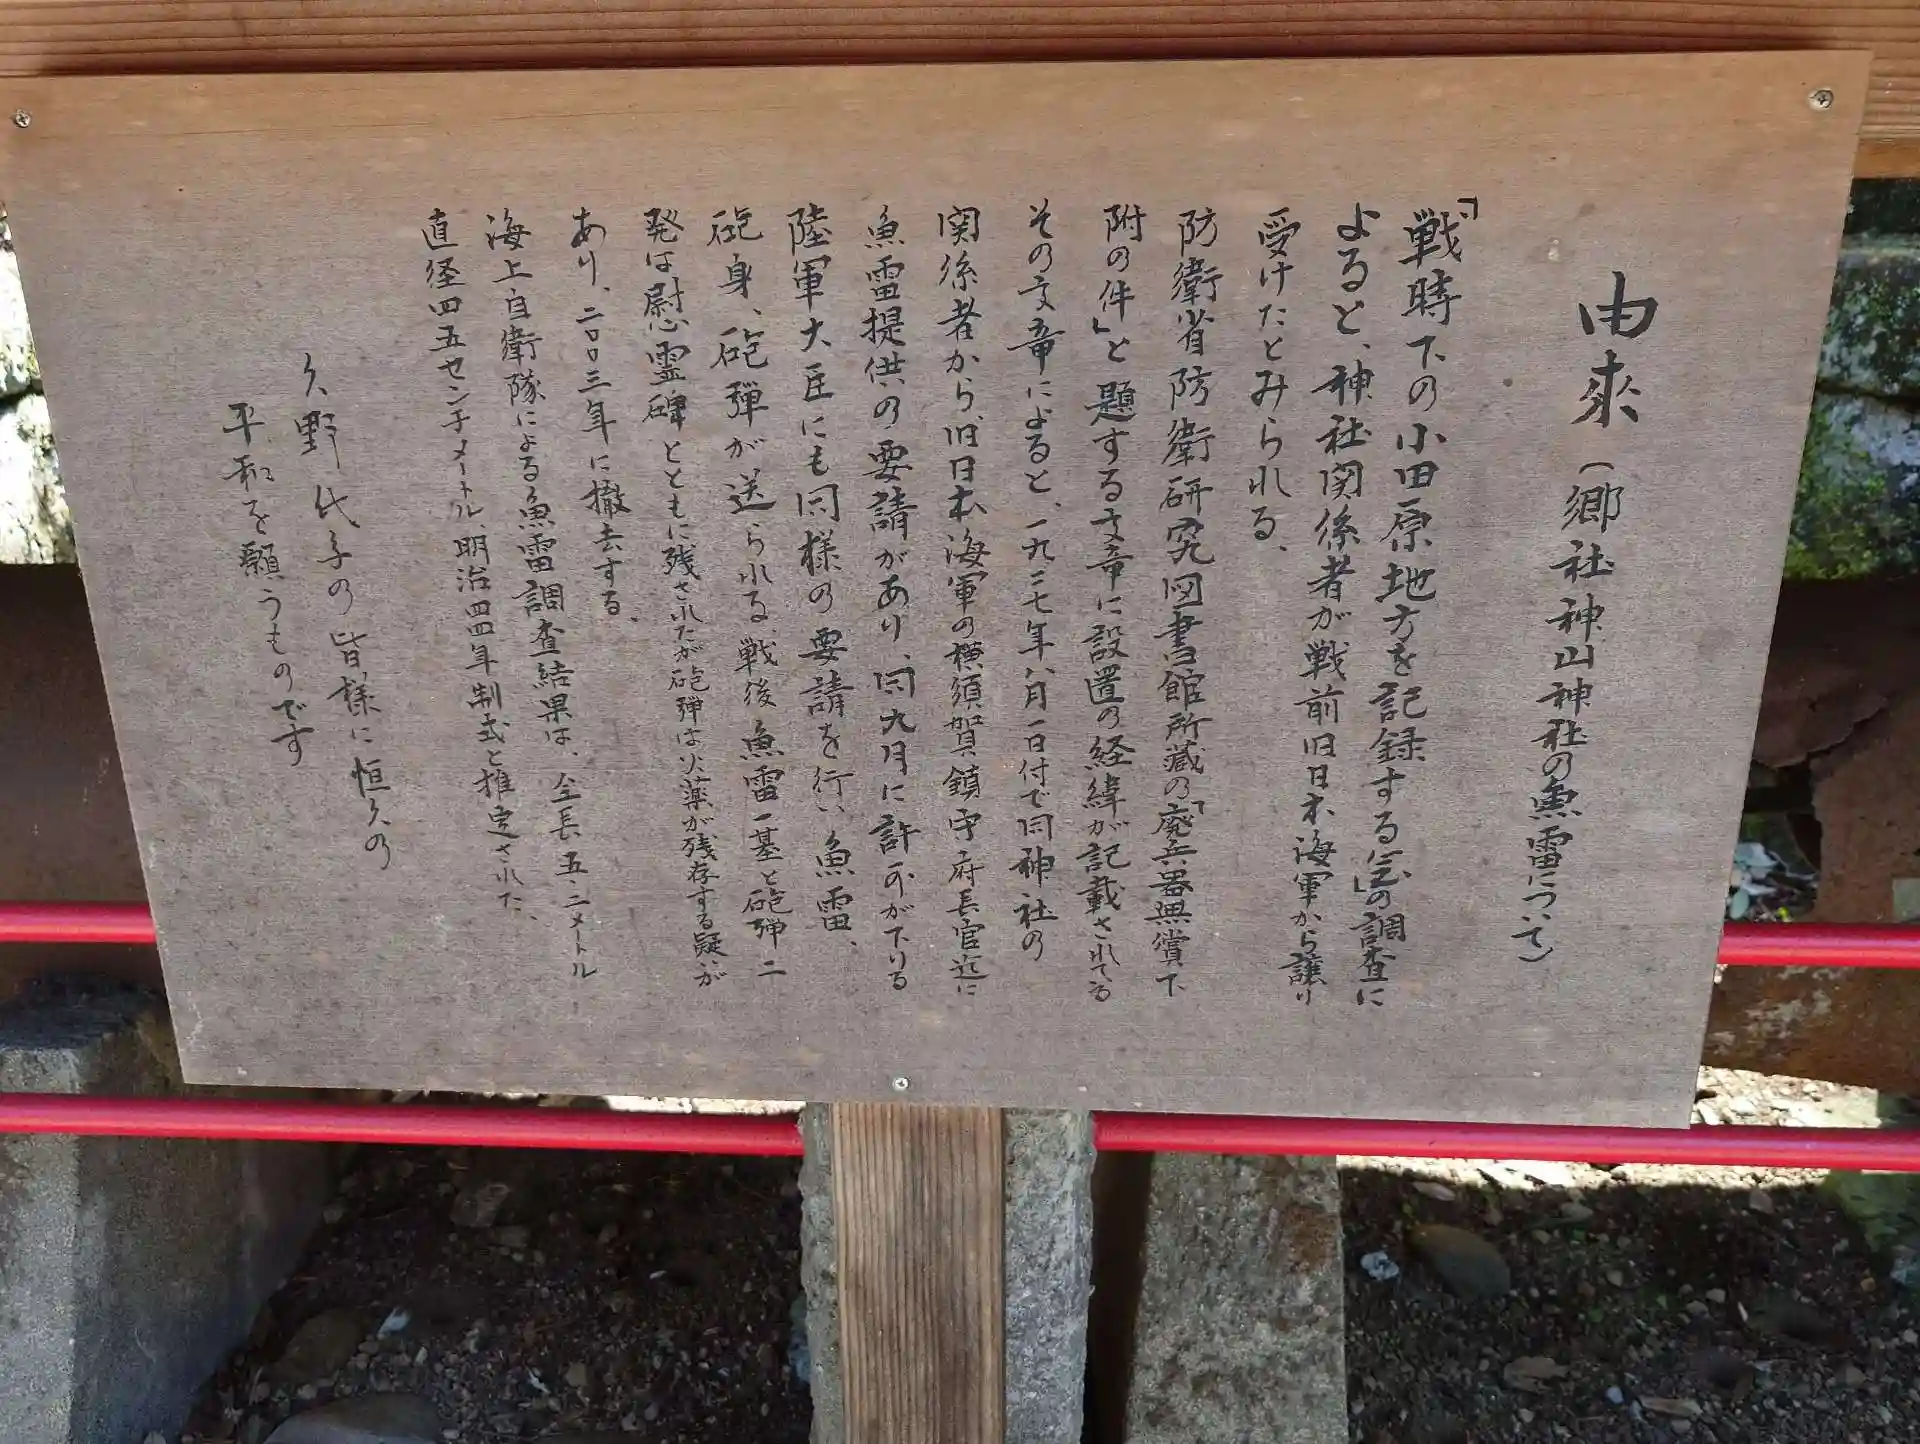 由来（郷社神山神社の魚雷について）
「戦時下の小田原地方を記録する会」の調査に
よると、神社関係者が戦前旧日本海軍から譲り
受けたとみられる、
防衛省防衛研究図書館所蔵の「廃兵器無償下
附の件」と題する文章に設置の経緯が記載されてる
その文章によると、一九三七年八月一日付で同神社の
関係者から、旧日本海軍の横須賀鎮守府長官迄に
魚雷提供の要請があり、同九月に許可が下りる
陸軍大臣にも同様の要請を行い、魚雷、
砲身、砲弾が送られる、戦後魚雷一基と砲弾二
発は慰霊碑とともに残されたが砲弾は火薬が残存する疑いが
あり、二〇〇三年に撤去する、
海上自衛隊による魚雷調査結果は、全長五・二メートル
直径四五センチメートル、明治四四年制式と推定された、
久野代子の皆様に恒久の
平和を願うものです